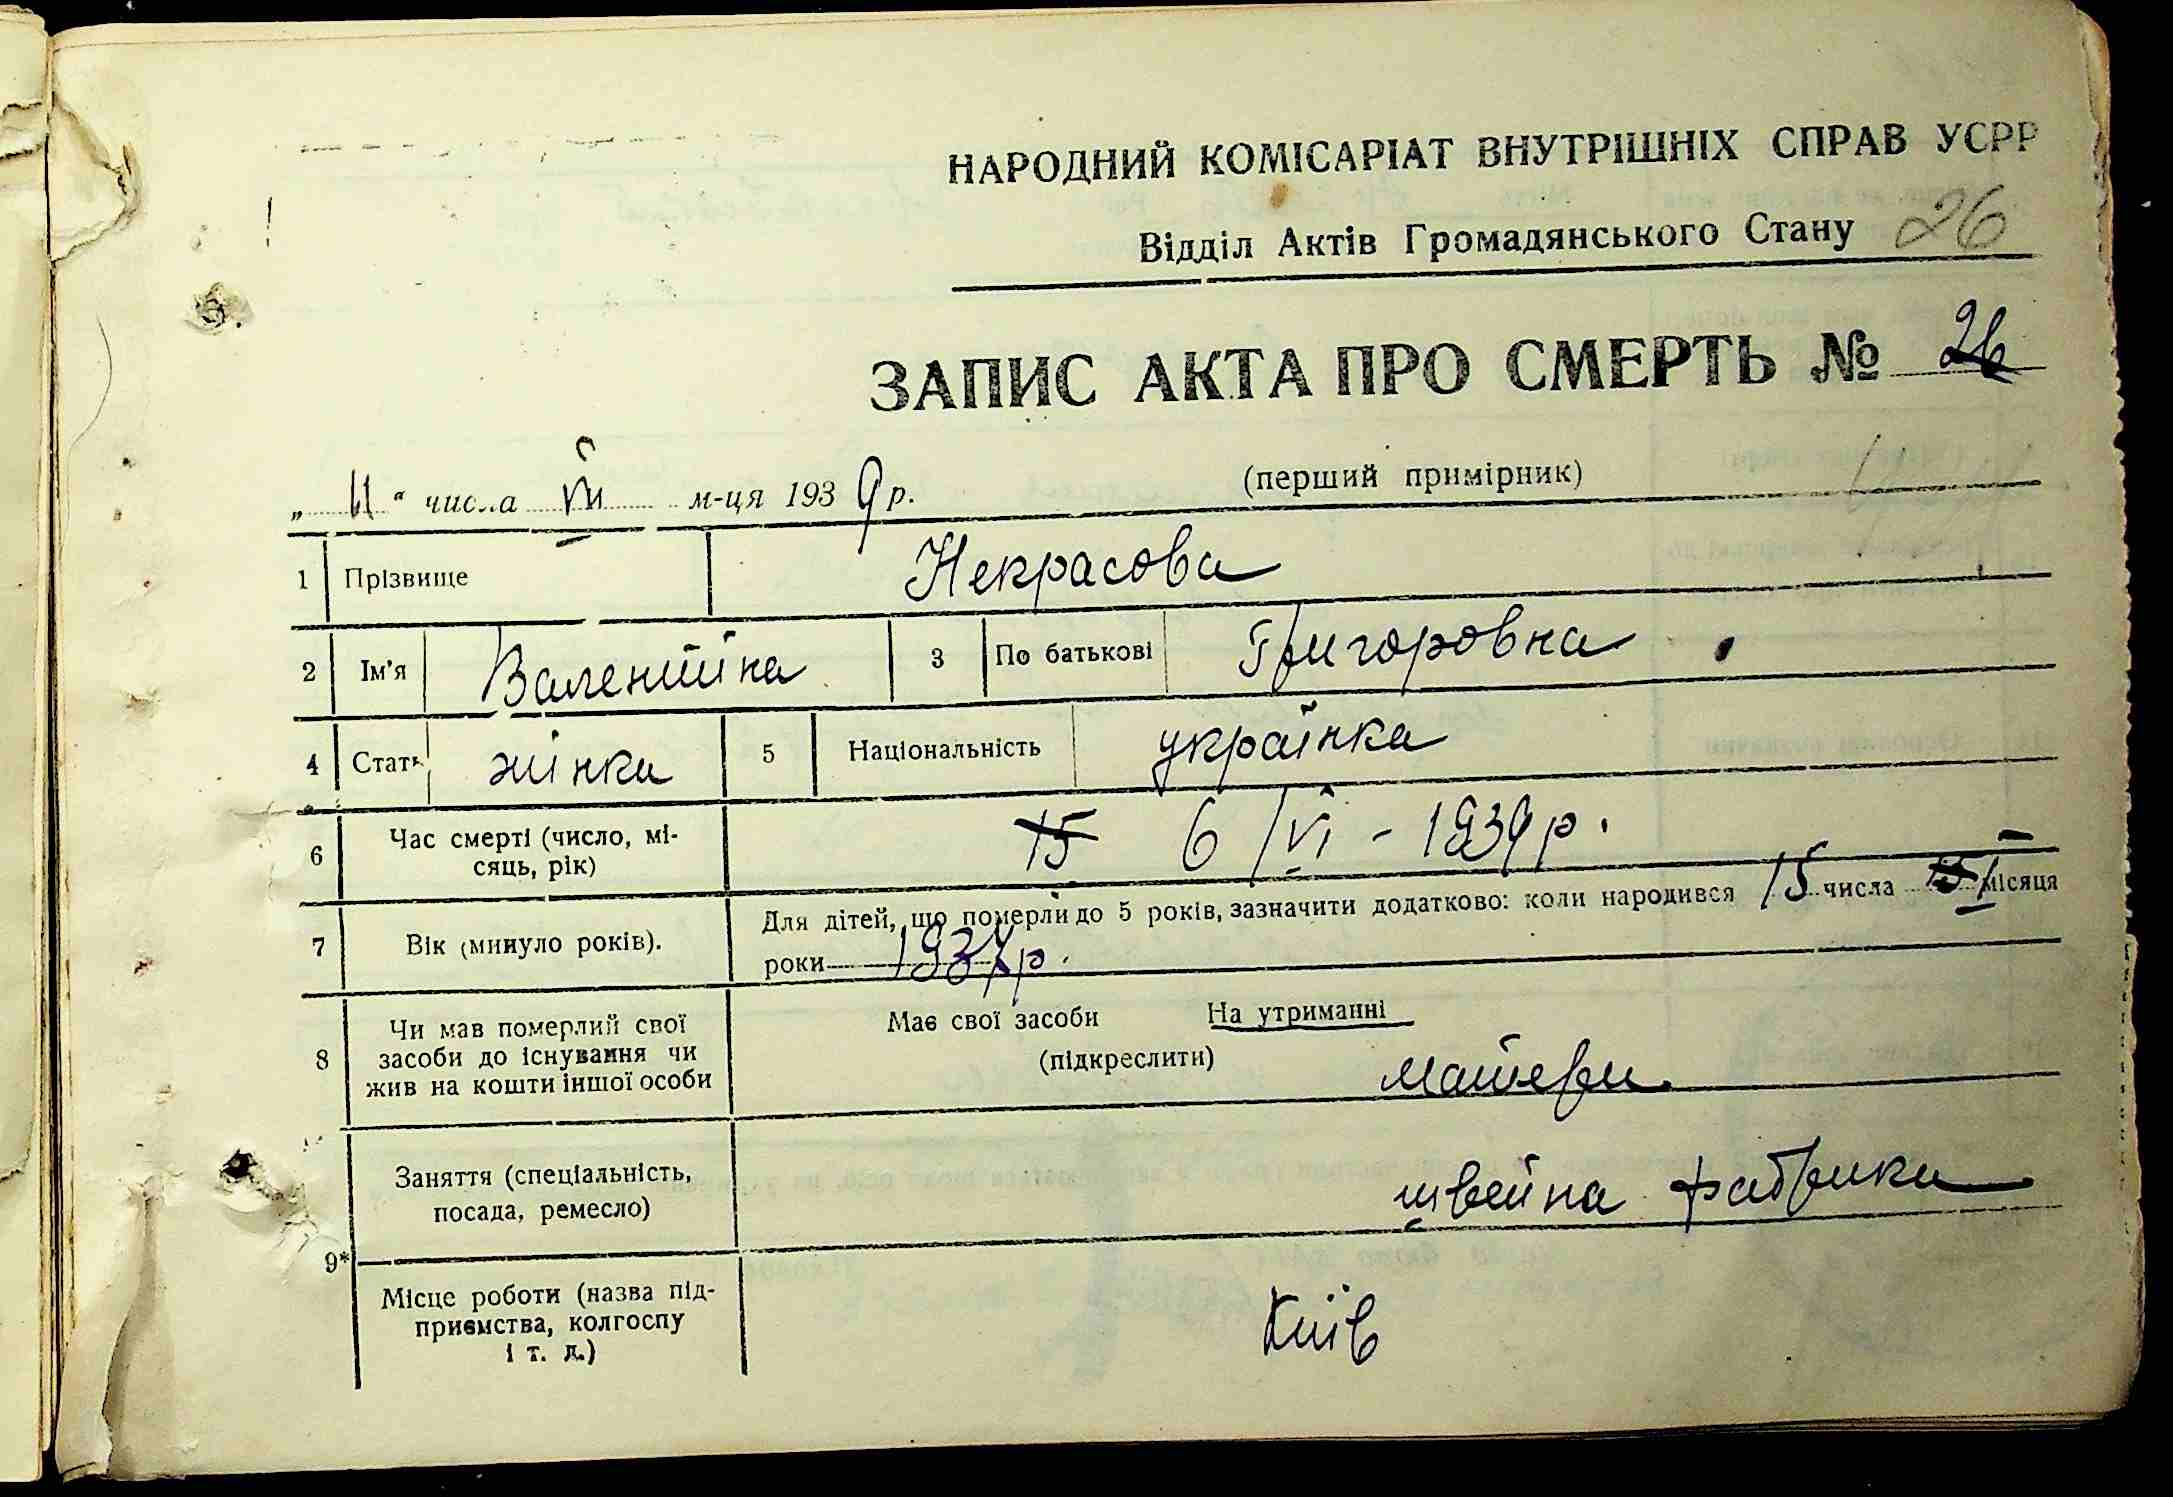 НАРОДНИЙ КОМІСАРІАТ ВНУТРІШНІХ СПРАВ УСРР
Відділ Актів Громадянського Стану 26
ЗАПИС АКТА ПРО СМЕРТЬ № 26
„ 11 “ числа м-ця 1939 р. (перший примірник)
1 Прізвище Некрасова
2 Ім'я Валентина 3 По батькові Григоровна
4 Стать жінка 5 Національність українка
6 Час смерті (число, мі-
сяць, рік) 15 6/VI - 1939 р.
7 Вік (минуло років). Для дітей, що померли до 5 років, зазначити додатково: коли народився 15 числа I місяця
роки 1937 р.
8 Чи мав померлий свої
засоби до існування чи
жив на кошти іншої особи
Має свої засоби На утриманні
(підкреслити) матери
9* Заняття (спеціальність,
посада, ремесло) швейна фабрика
Місце роботи (назва під-
приємства, колгоспу
і т. д.) Київ